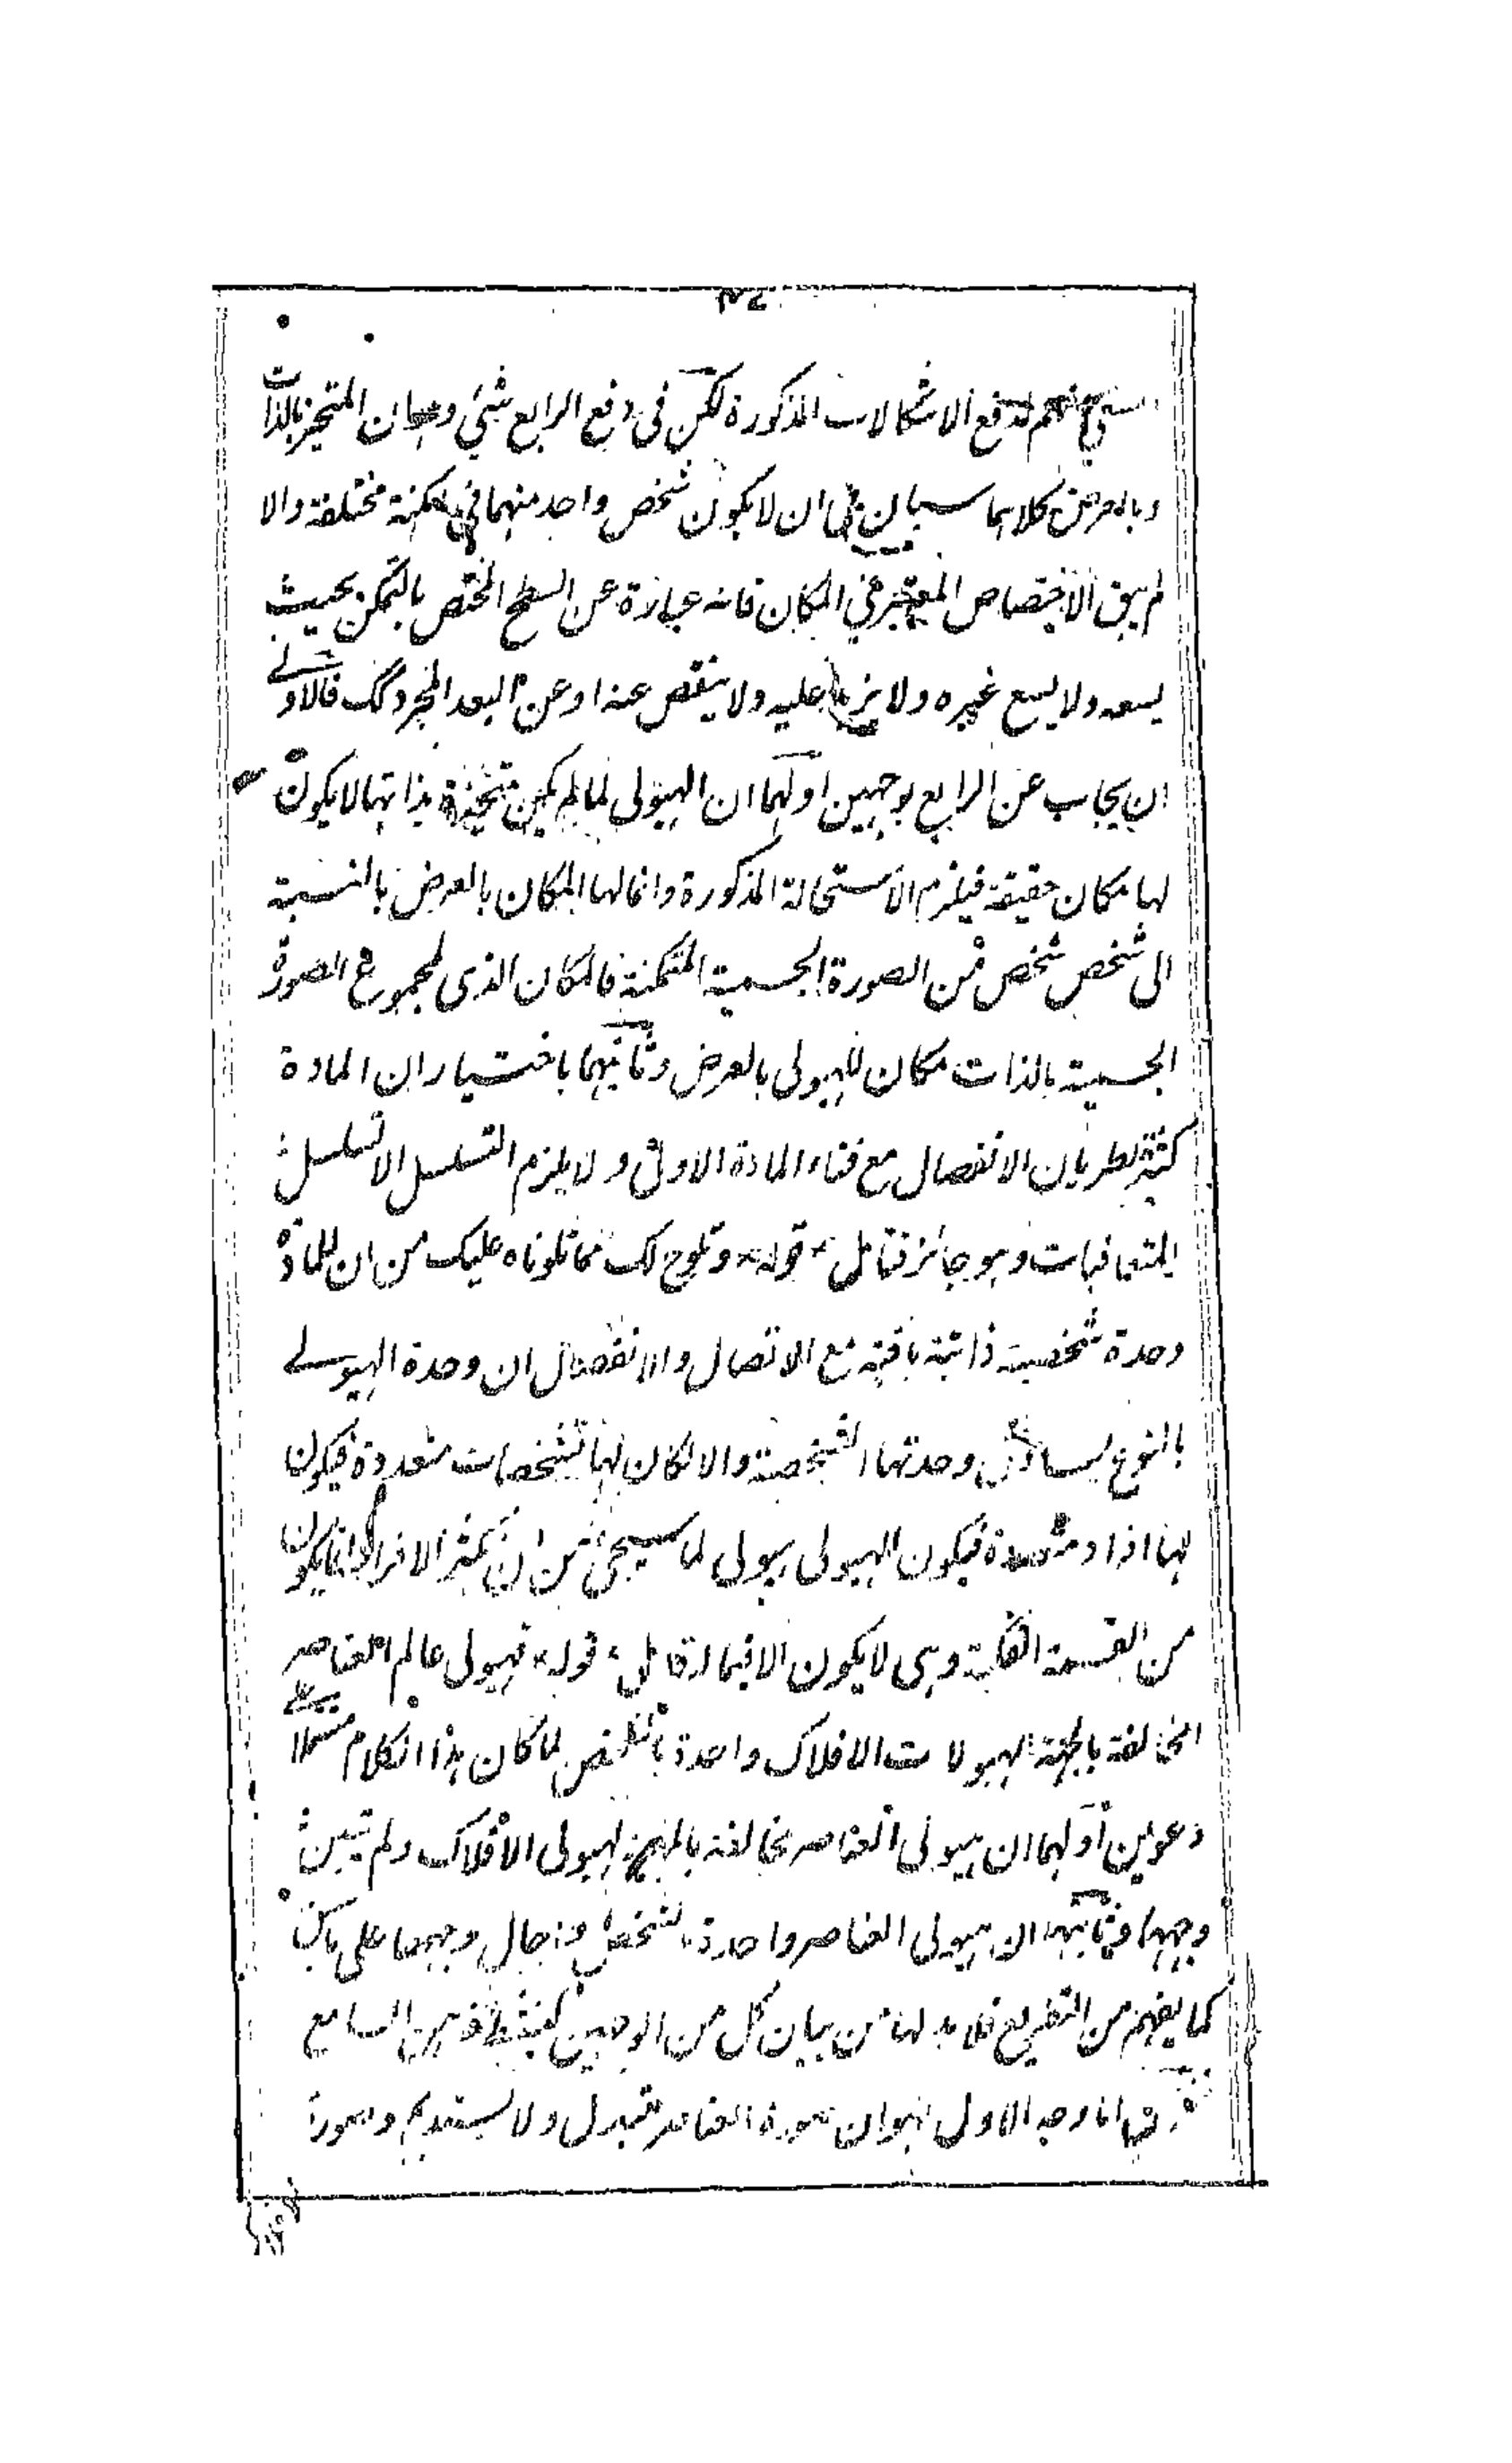 ٣٤
فع الاشكالات المذكورة لكن فى دفع الرابع شئ وهو ان المتحيز بالذات
وبالعرض كلاهما سيان فى ان لا يكون شخص واحد منهما فى امكنة مختلفة والا
لم يبق الاختصاص المعتبر فى المكان فانه عبارة عن السطح المختص بالتمكن بحيث
يسعه ولا يسع غيره ولا يزيد عليه ولا ينقص عنه او عن البعد المجرد كك فالاولے
ان يجاب عن الرابع بوجهين اولهما ان الهيولى لما لم يكن متحيزة بذاتها لا يكون
لها مكان حقيقة فيلزم الاستحالة المذكورة وانما لها المكان بالعرض بالنسبة
الى شخص شخص من الصورة الجسمية المتمكنة فالمكان الذى لمجموع الصورة
الجسمية بالذات مكان للهيولى بالعرض وثانيهما باختيار ان المادة
كثيرة لطريان الانفصال مع فناء المادة الاولى ولا يلزم التسلسل الا تسلسل
المتعاقبات وهو جائز فتامل قوله وتلوح لك مما تلوناه عليك من ان للمادة
وحدة شخصية ذاتية باقية مع الاتصال والانفصال ان وحدة الهيولے
بالنوع يساوق وحدتها الشخصية والا لكان لها تشخصات متعددة فيكون
لها افراد متعددة فيكون للهيولى هيولى لما سيجئ من ان تكثر الافراد انما يكون
من القسمة الفكية وهى لا يكون الا فيما قوله فهيولى عالم العناصر
المخالفة بالمهية لهيولات الافلاك واحدة بالشخص لما كان هذا الكلام مشتملا على
دعوين اولهما ان هيولى العناصر مخالفة بالمهية لهيولى الافلاك ولم يتبين
وجهها وثانيهما ان هيولى العناصر واحدة بالشخص واحال وجهها على ما سبق
كما يفهم من التفريع فلا بد لنا من بيان كل من الوجهين لينشط ذهن السامع
اما وجه الاول فهو ان صورة العناصر تتبدل ولا يستديم وصورة